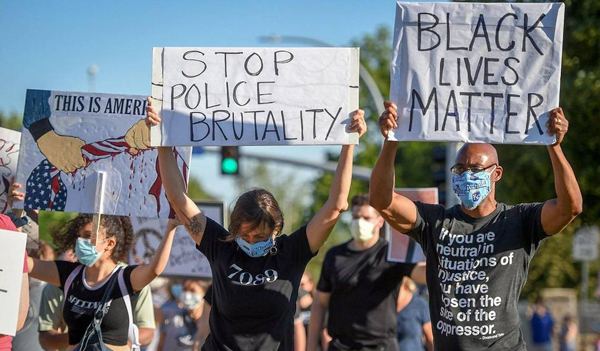 STOP
POLICE
BRUTALITY
BLACK
LIVES
MATTER
THIS IS AMERI
7089
If you are
neutral in
situations of
injustice,
you have
chosen the
side of the
oppressor.